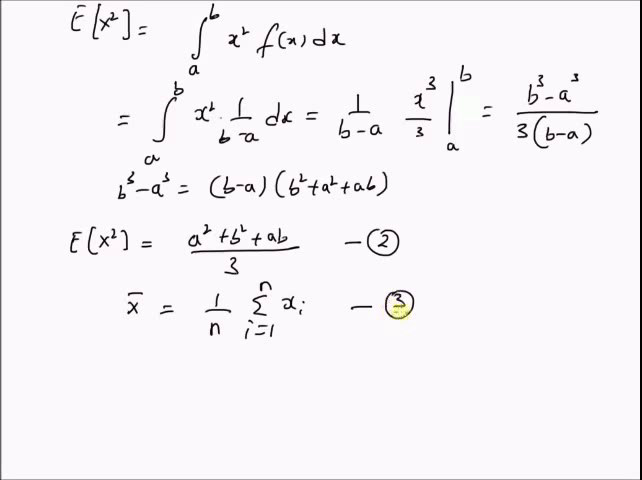 E[x²] = ∫ₐᵇ x² f(x) dx
= ∫ₐᵇ x² · 1/(b-a) dx = 1/(b-a) x³/3 |ₐᵇ = (b³-a³)/(3(b-a))
b³-a³ = (b-a)(b²+a²+ab)
E[x²] = (a²+b²+ab)/3 — ②
x̄ = 1/n Σᵢ₌₁ⁿ xᵢ — ③